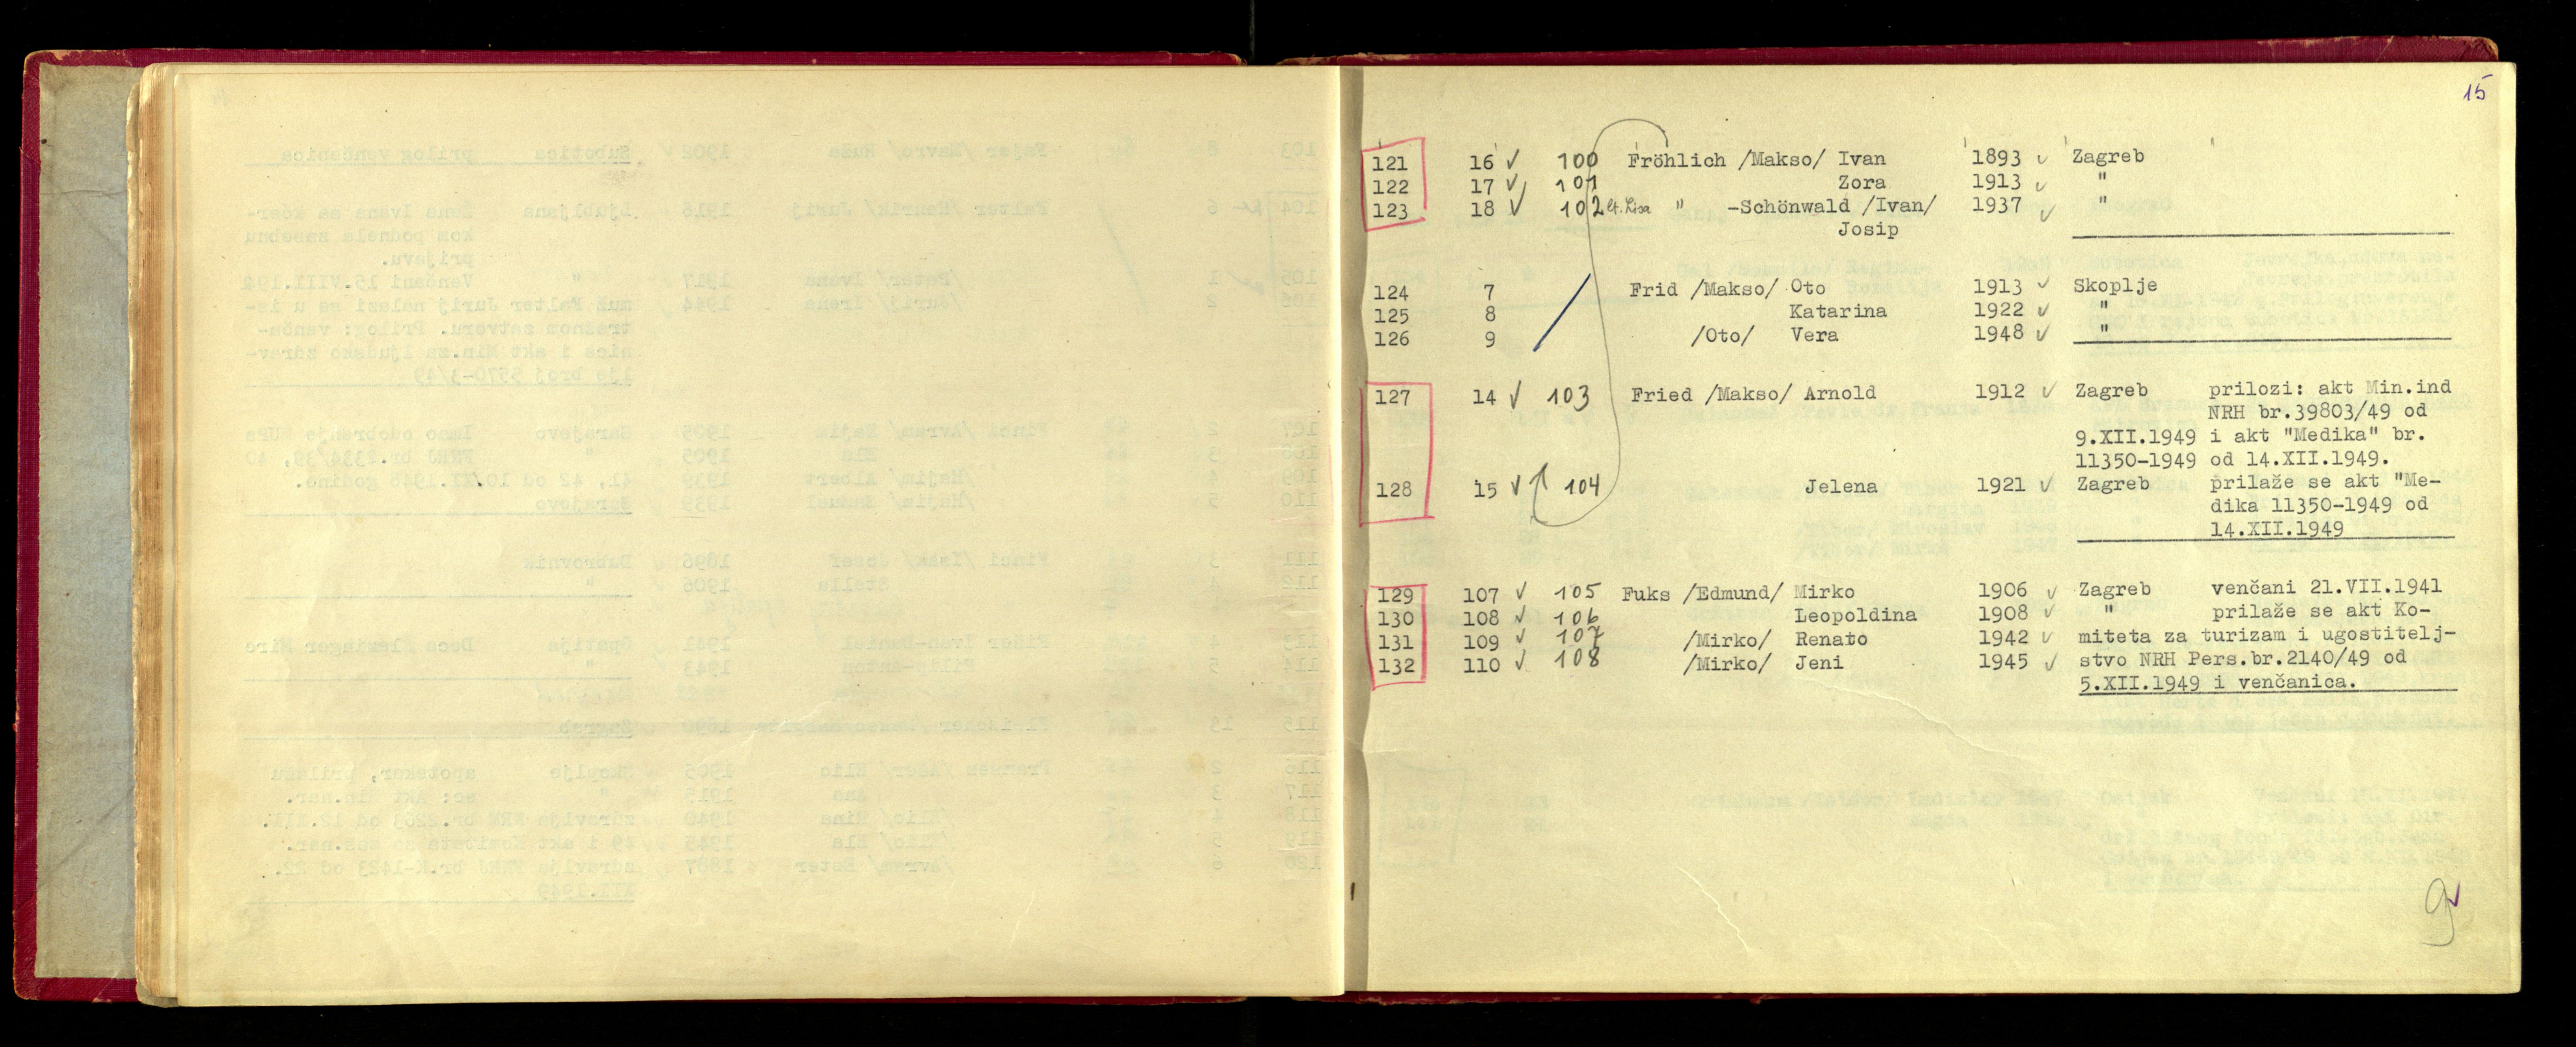 15
121 16 ✓ 100 Fröhlich /Makso/ Ivan 1893 ✓ Zagreb
122 17 ✓ 101 Zora 1913 ✓ "
123 18 ✓ 102 " -Schönwald /Ivan/ 1937 ✓ "
Josip
124 7 Frid /Makso/ Oto 1913 ✓ Skoplje
125 8 Katarina 1922 ✓ "
126 9 /Oto/ Vera 1948 ✓ "
127 14 ✓ 103 Fried /Makso/ Arnold 1912 ✓ Zagreb prilozi: akt Min.ind
NRH br.39803/49 od
9.XII.1949 i akt "Medika" br.
11350-1949 od 14.XII.1949.
128 15 ✓ 104 Jelena 1921 ✓ Zagreb prilaže se akt "Me-
dika 11350-1949 od
14.XII.1949
129 107 ✓ 105 Fuks /Edmund/ Mirko 1906 ✓ Zagreb venčani 21.VII.1941
130 108 ✓ 106 Leopoldina 1908 ✓ " prilaže se akt Ko-
131 109 ✓ 107 /Mirko/ Renato 1942 ✓ miteta za turizam i ugostitelj-
132 110 ✓ 108 /Mirko/ Jeni 1945 ✓ stvo NRH Pers.br.2140/49 od
5.XII.1949 i venčanica.
9